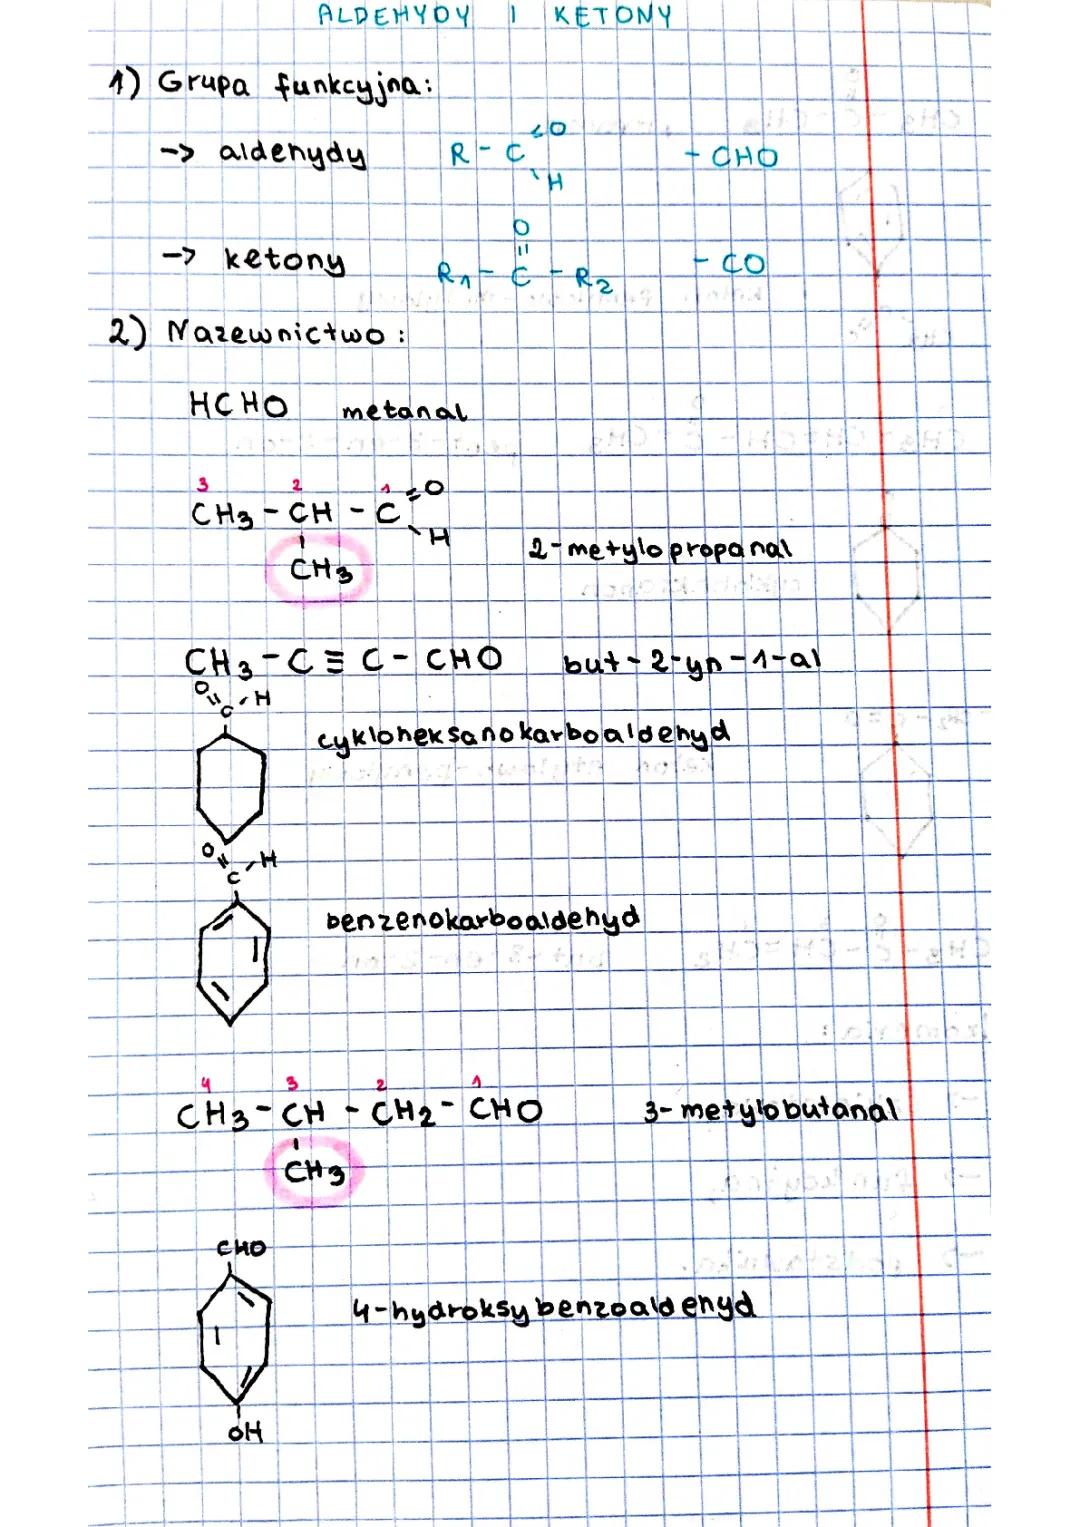 ALDEHYDY I KETONY
1) Grupa funkcyjna:
-> aldehydy R - C =O \H - CHO
-> ketony R1 - C - R2 - CO
O
2) Nazewnictwo:
HCHO metanal
3 2 1
CH3 - CH - C =O \H
CH3
2-metylopropanal
CH3 - C ≡ C - CHO but-2-yn-1-al
O = C - H
cykloheksanokarboaldehyd
O = C - H
benzenokarboaldehyd
4 3 2 1
CH3 - CH - CH2 - CHO 3-metylobutanal
CH3
CHO
4-hydroksybenzoaldehyd
OH